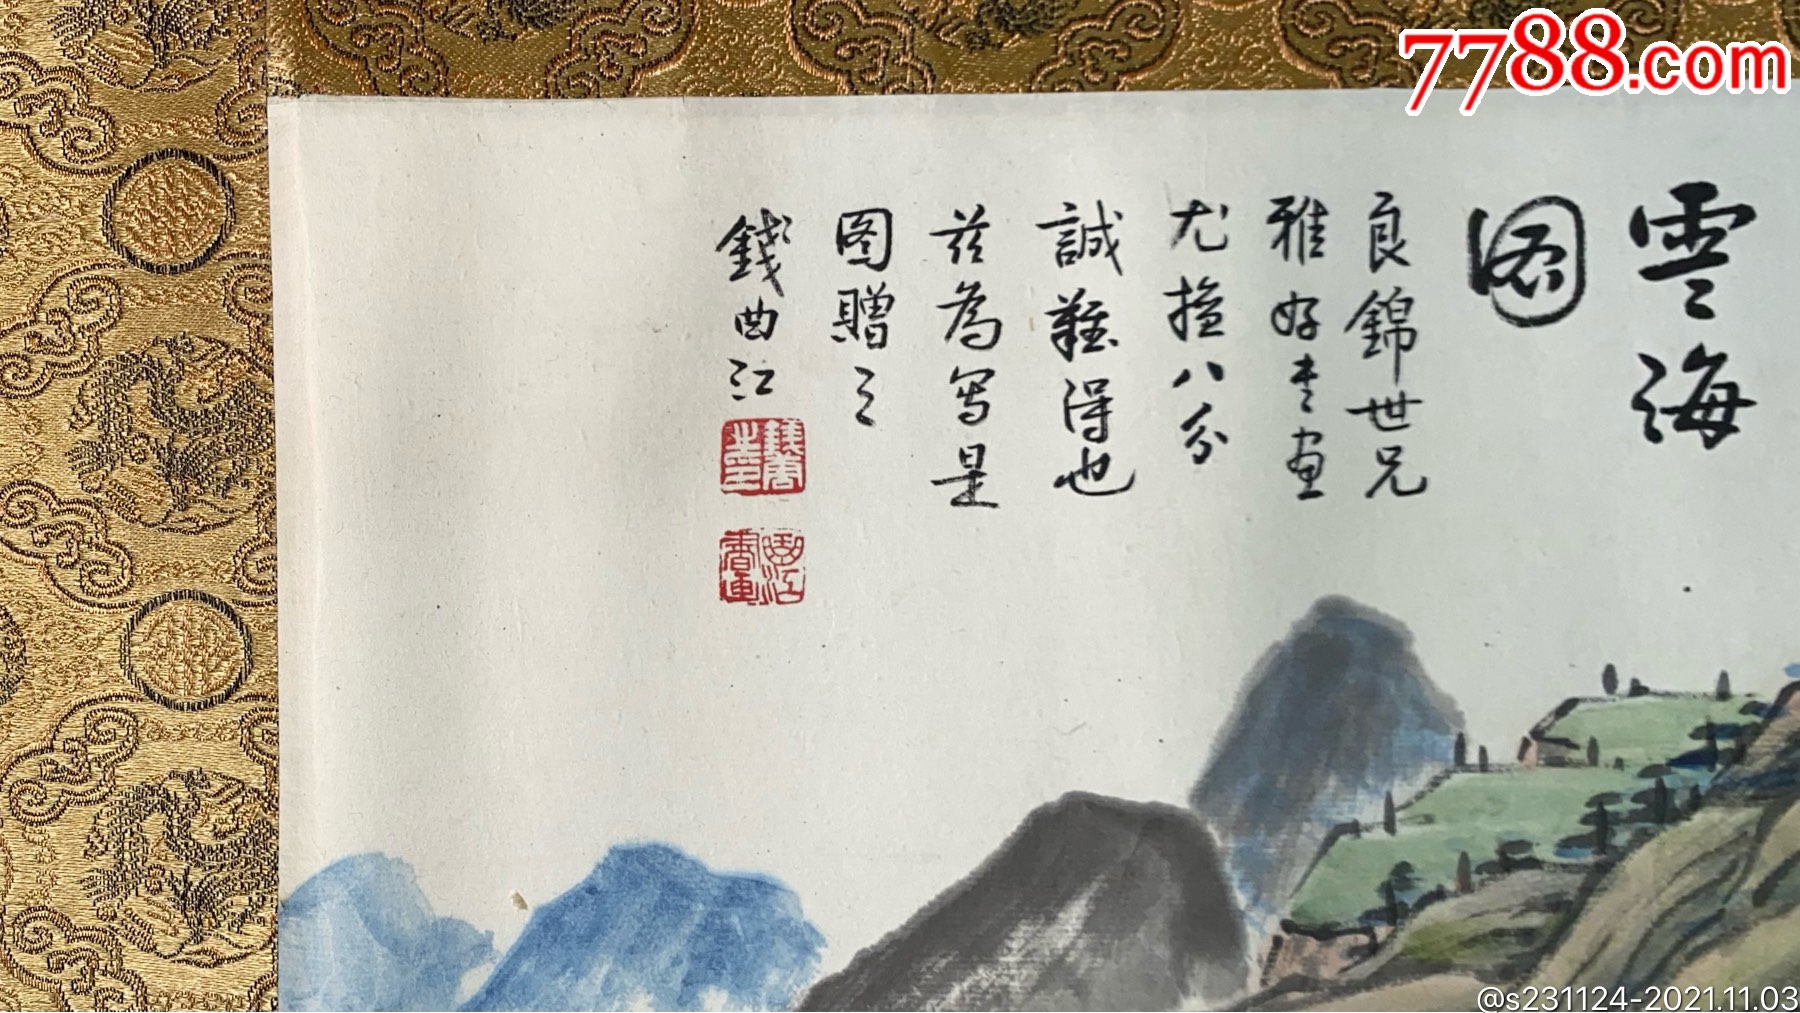 7788.com
雲海
图
良錦世兄
雅好書画
尤擅八分
誠難得也
兹為写是
图贈之
錢曲江
@s231124-2021.11.03